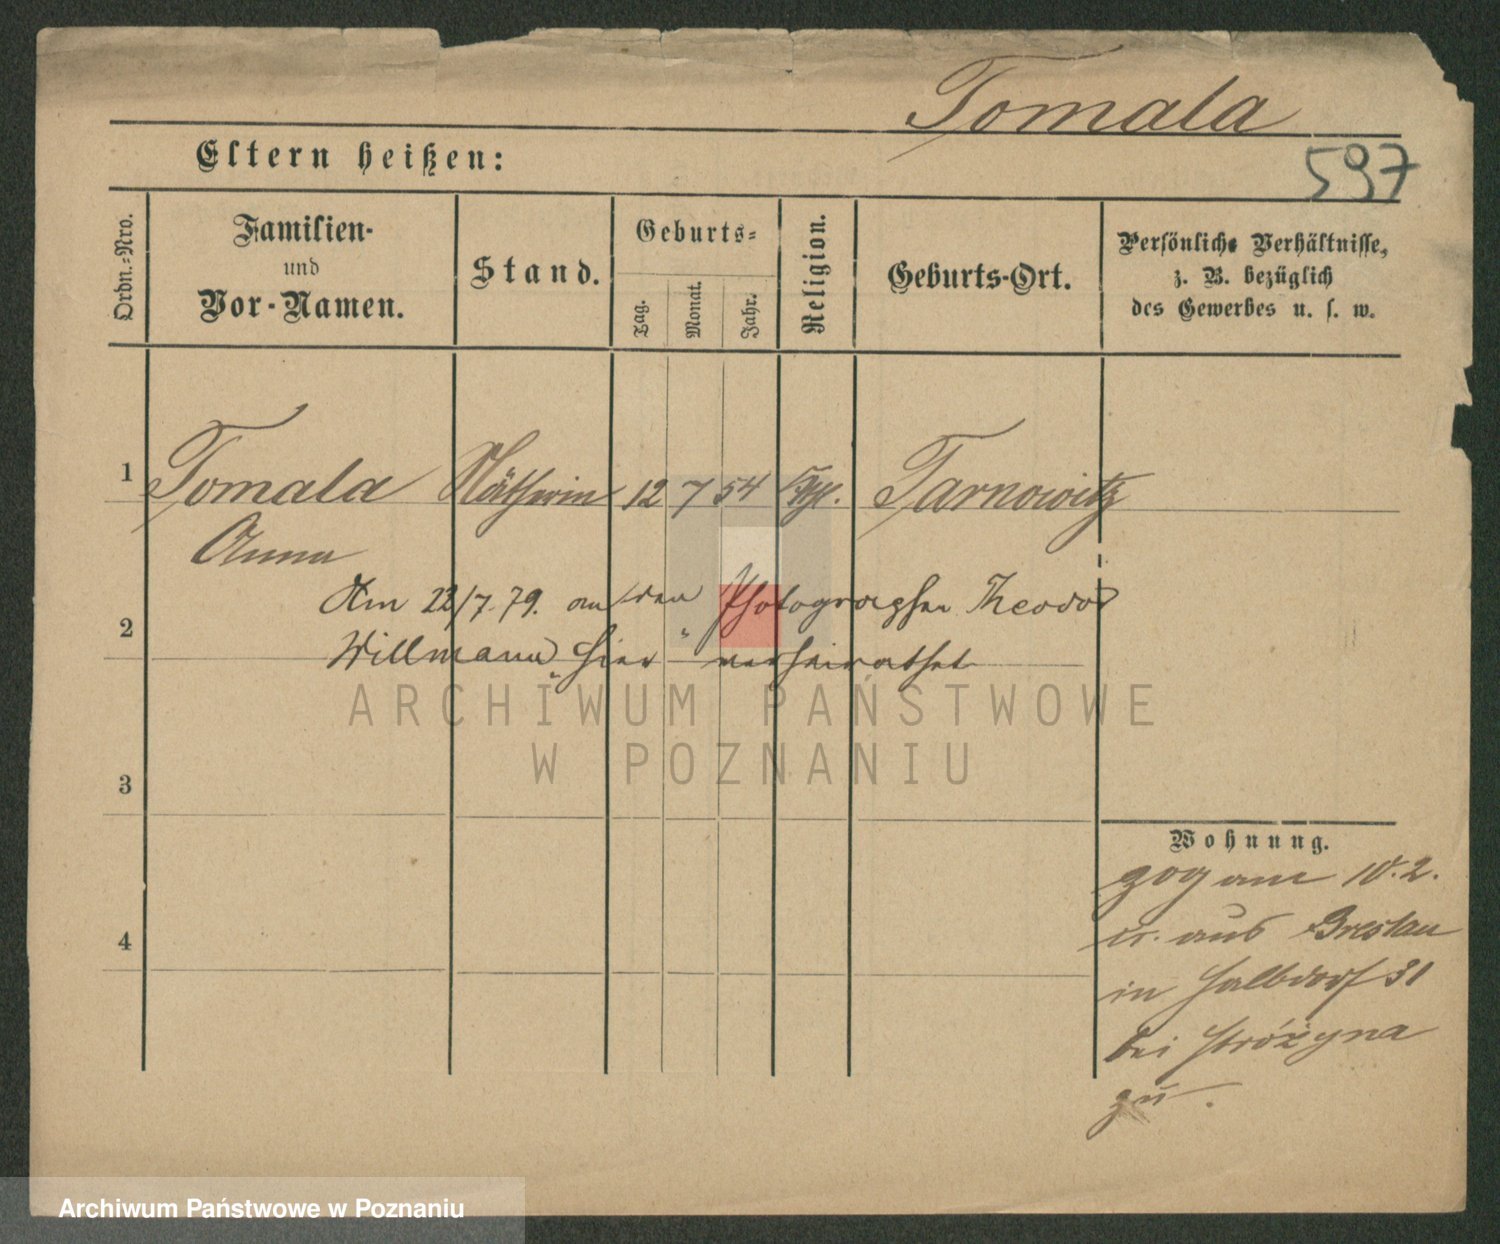 Tomala
Eltern heißen:
597
Ordn.-Nro.
Familien-
und
Vor-Namen.
Stand.
Geburts-
Tag.
Monat.
Jahr.
Religion.
Geburts-Ort.
Persönliche Verhältnisse,
z. B. bezüglich
des Gewerbes u. s. w.
1 Tomala Nätherin 12 7 54 Kth. Tarnowitz
Anna
Am 22/7. 79. an den Photographen Theodor
2
Willmann hier verheirathet
ARCHIWUM PAŃSTWOWE
W POZNANIU
3
Wohnung.
zog am 10. 2.
cr. aus Breslau
4
in Halbdorf 31
bei Stróżyna
zu.
Archiwum Państwowe w Poznaniu